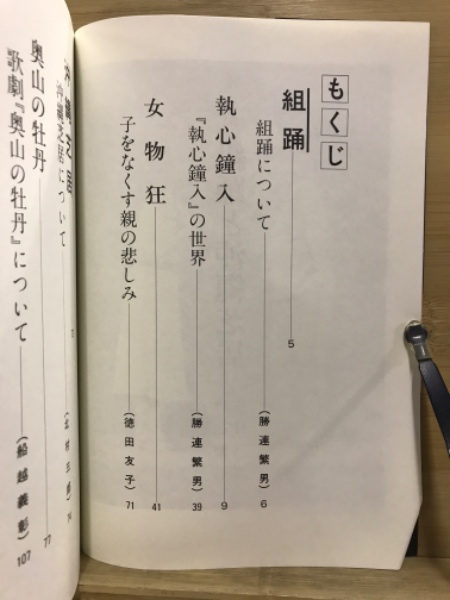 もくじ
組踊 5
組踊について (勝連繁男) 6
執心鐘入 9
『執心鐘入』の世界 (勝連繁男) 39
女物狂 41
子をなくす親の悲しみ (徳田友子) 71
沖縄芝居
沖縄芝居について 74
奥山の牡丹 77
歌劇『奥山の牡丹』について (船越義彰) 107